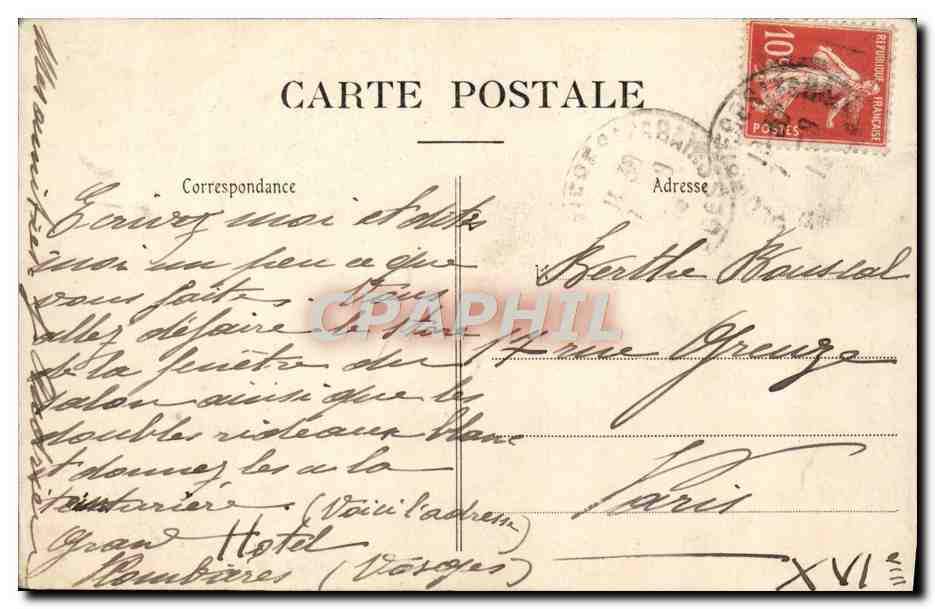 CARTE POSTALE
Correspondance
Ecrivez moi et dites
moi un peu ce que
vous faites. Vous
allez défaire le store
de la fenêtre du
salon ainsi que les
doubles rideaux blanc
et donnez les a la
teinturière. (Voici l'adresse)
Grand Hotel
Plombières (Vosges)
Adresse
Berthe Rouscal
7 rue Greuze
Paris
XVI
REPUBLIQUE FRANÇAISE
10
POSTES
CPAPHIL